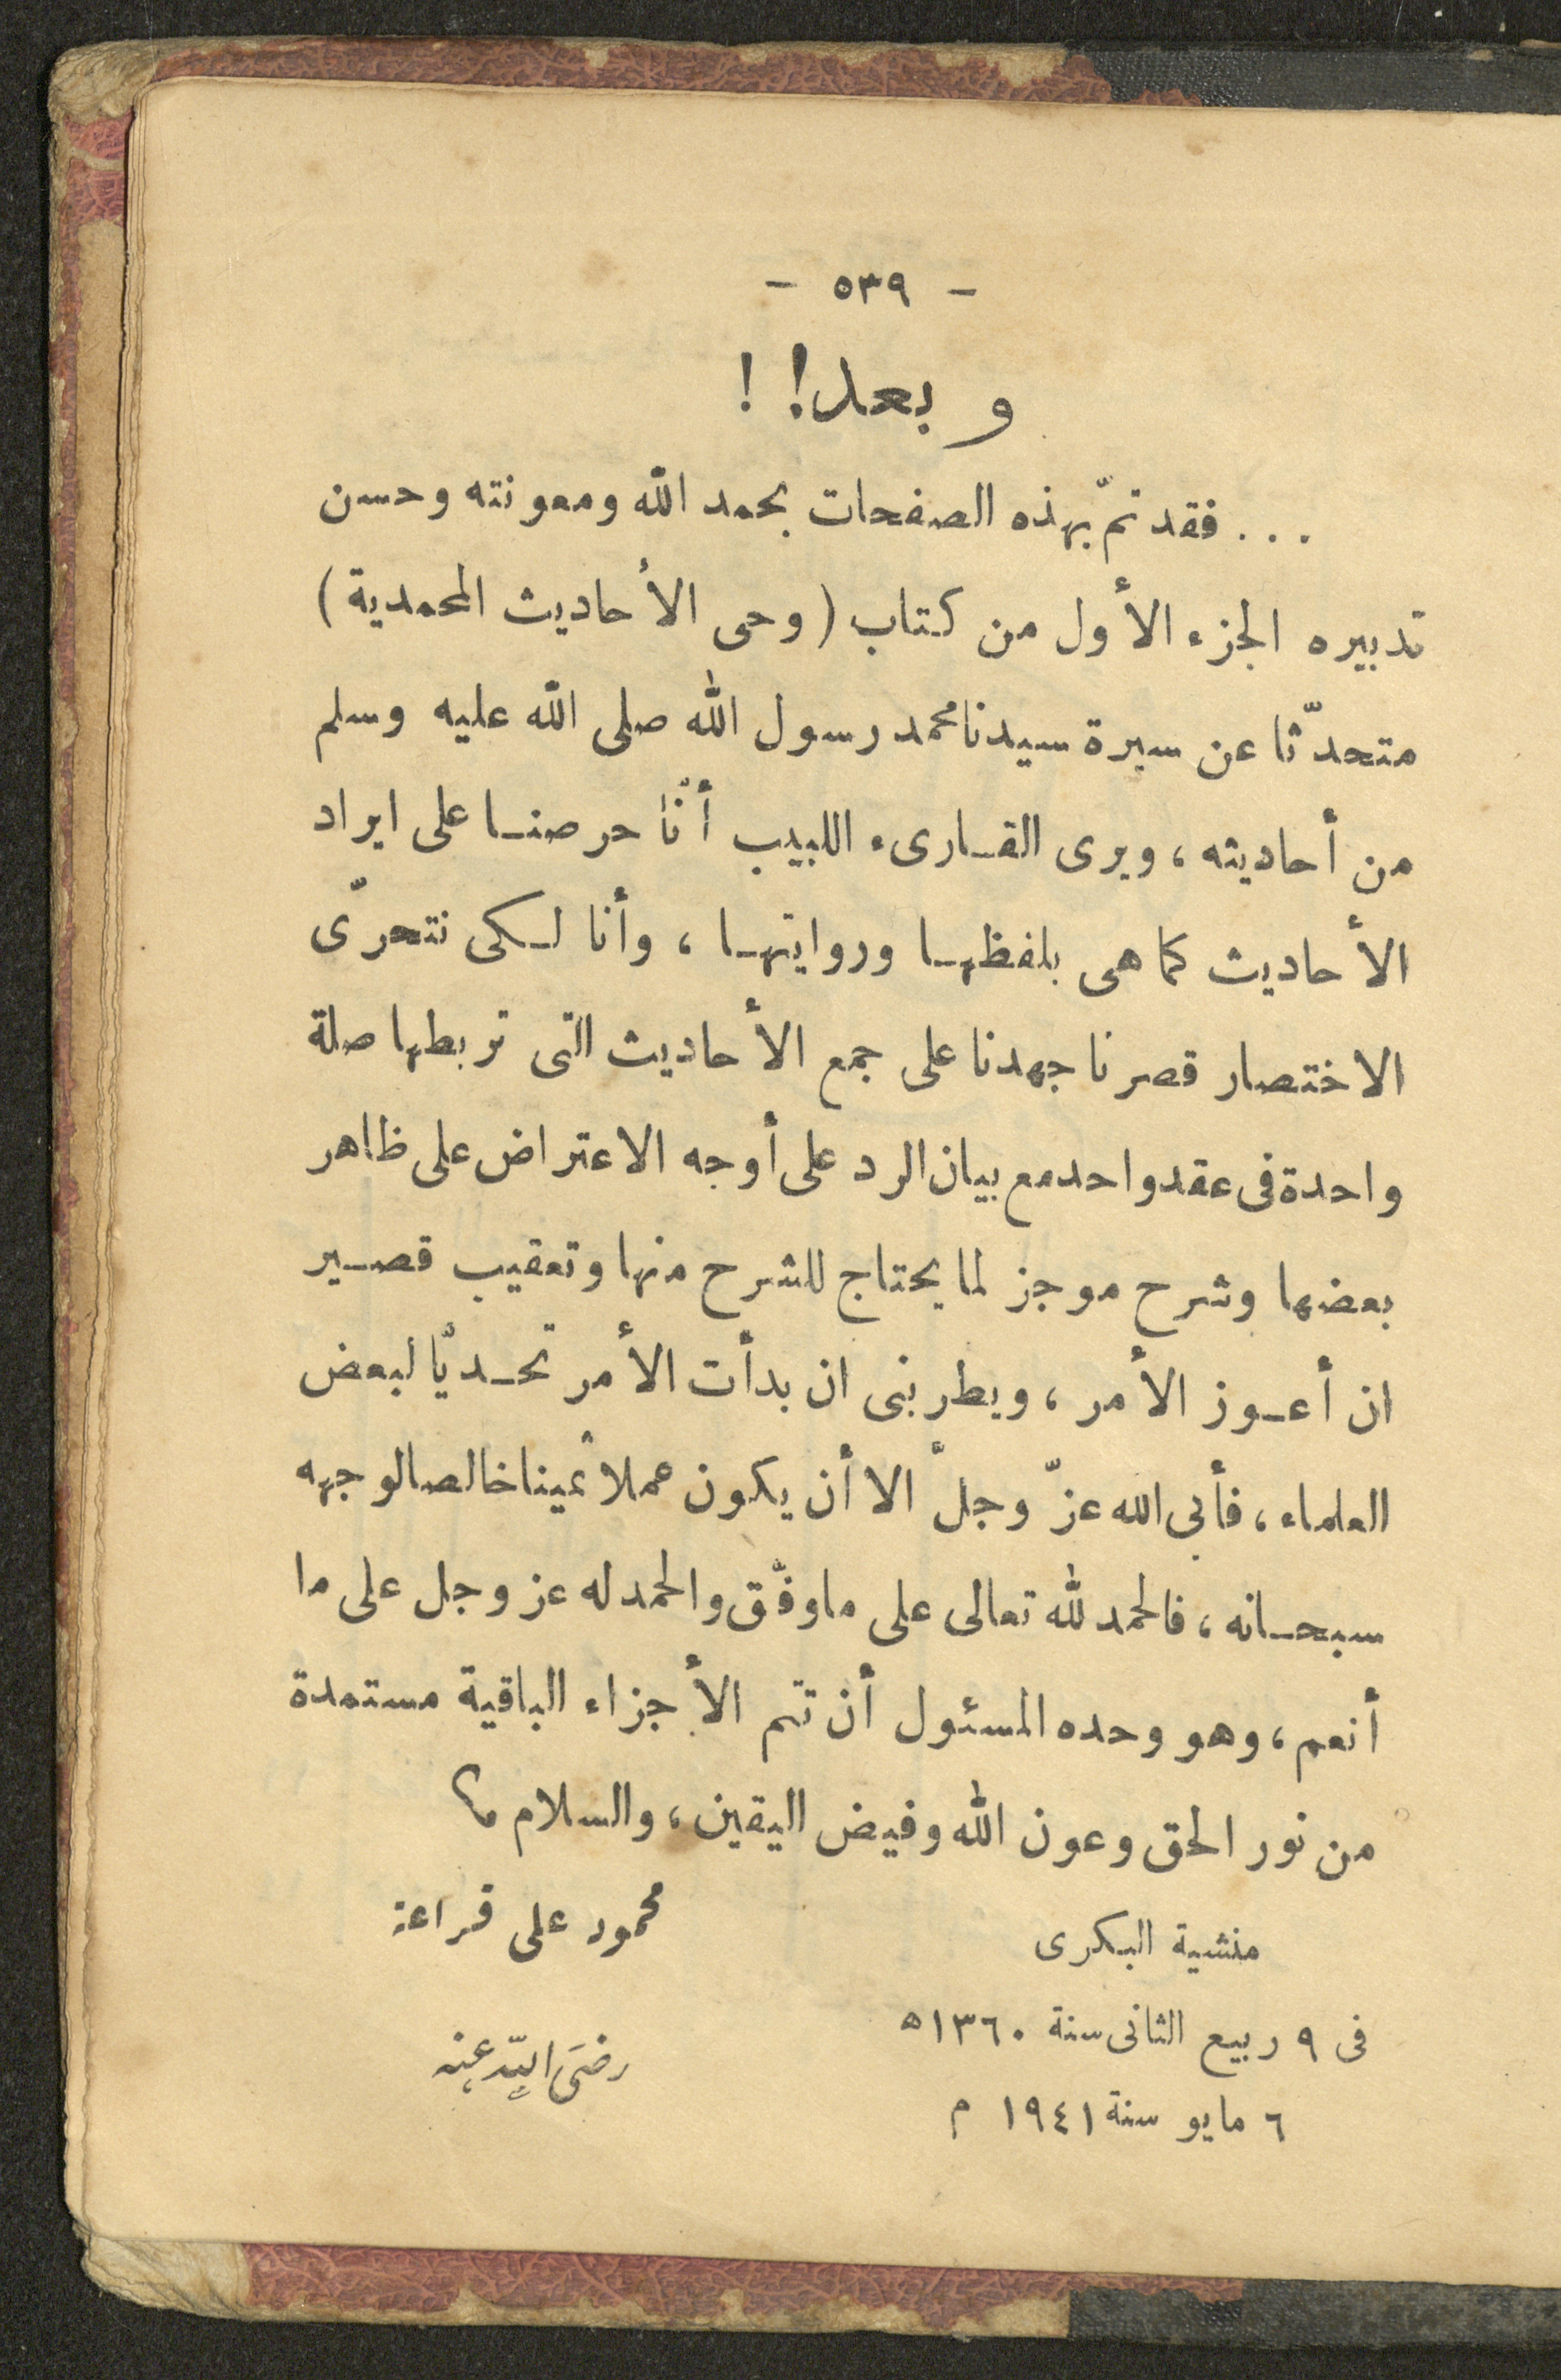 - ٥٣٩ -
وبعد!!
... فقد تمّ بهذه الصفحات بحمد الله ومعونته وحسن
تدبيره الجزء الأول من كتاب (وحى الأحاديث المحمدية)
متحدّثا عن سيرة سيدنا محمد رسول الله صلى الله عليه وسلم
من أحاديثه، ويرى القارىء اللبيب أنّنا حرصنا على ايراد
الأحاديث كما هى بلفظها وروايتها، وأنا لكى نتحرّى
الاختصار قصرنا جهدنا على جمع الأحاديث التى تربطها صلة
واحدة فى عقد واحد مع بيان الرد على أوجه الاعتراض على ظاهر
بعضها وشرح موجز لما يحتاج للشرح منها وتعقيب قصير
ان أعوز الأمر، ويطربنى ان بدأت الأمر تحديّا لبعض
العلماء، فأبى الله عزّ وجلّ الا أن يكون عملا ثمينا خالصا لوجهه
سبحانه، فالحمد لله تعالى على ما وفّق والحمد له عز وجل على ما
أنعم، وهو وحده المسئول أن تتم الأجزاء الباقية مستمدة
من نور الحق وعون الله وفيض اليقين، والسلام
محمود على قراعة
منشية البكرى
فى ٩ ربيع الثانى سنة ١٣٦٠ ه
رضى الله عنه
٦ مايو سنة ١٩٤١ م